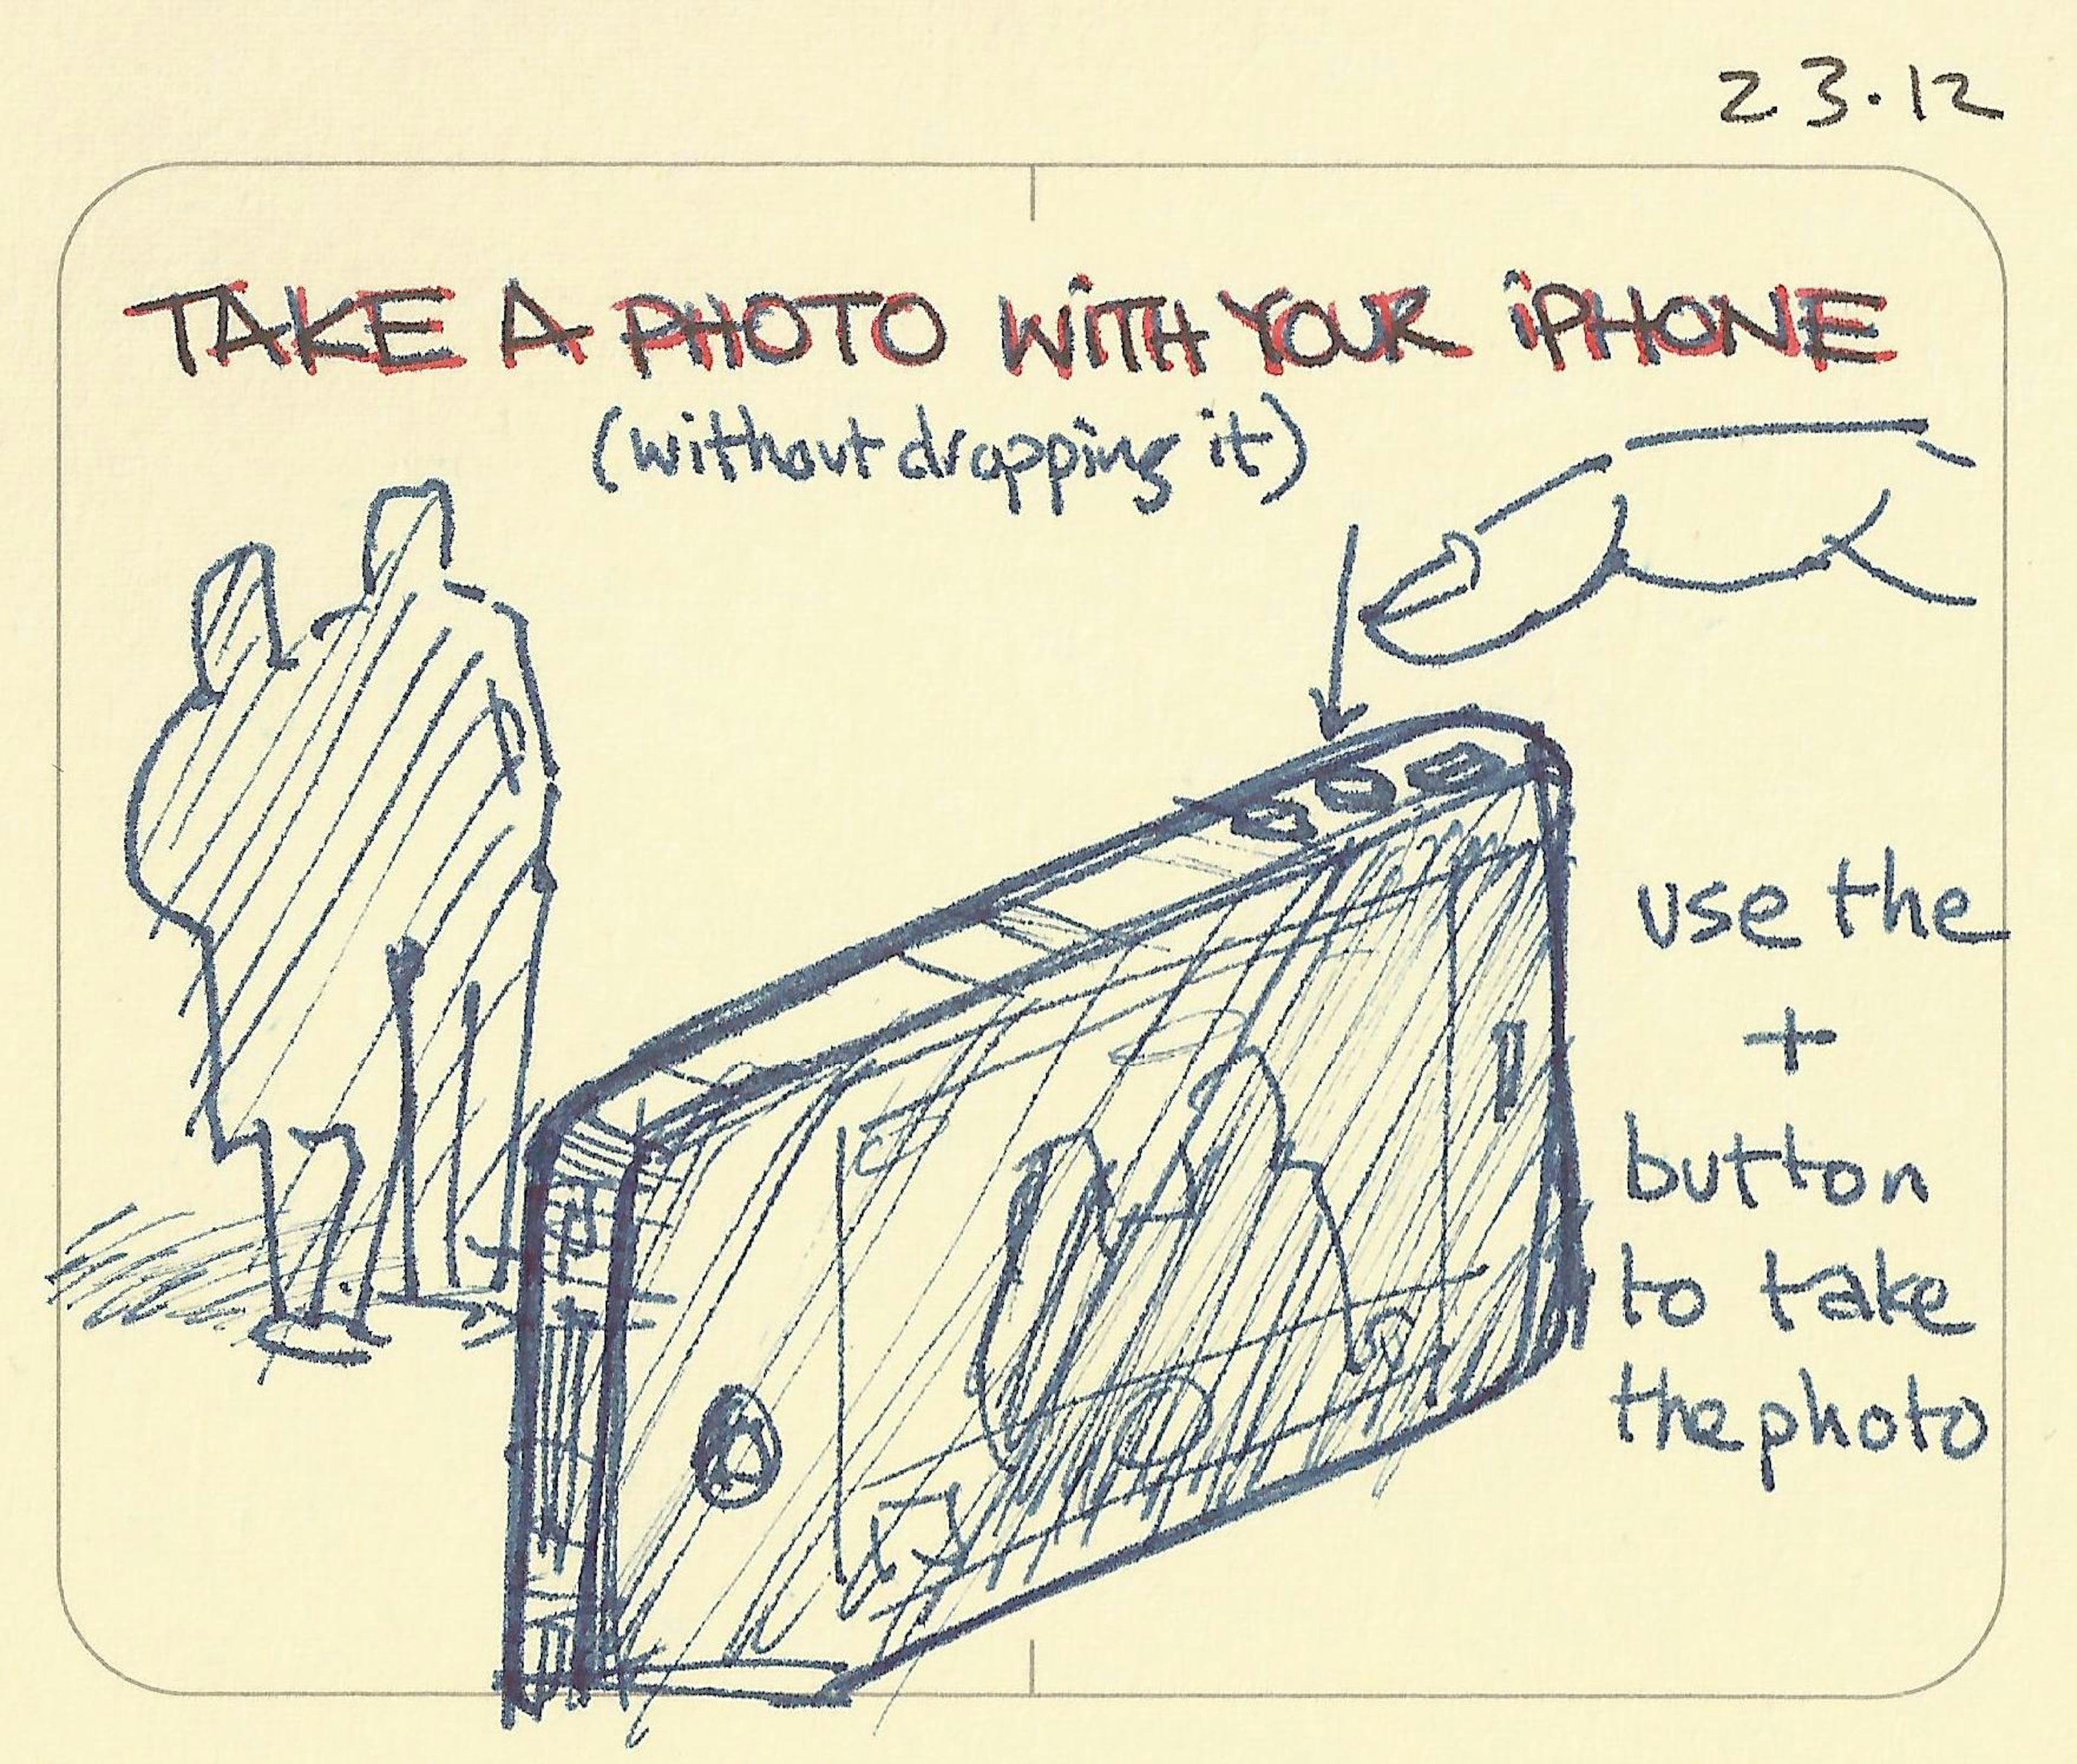 23.12
TAKE A PHOTO WITH YOUR iPHONE
(without dropping it)
use the
+
button
to take
the photo